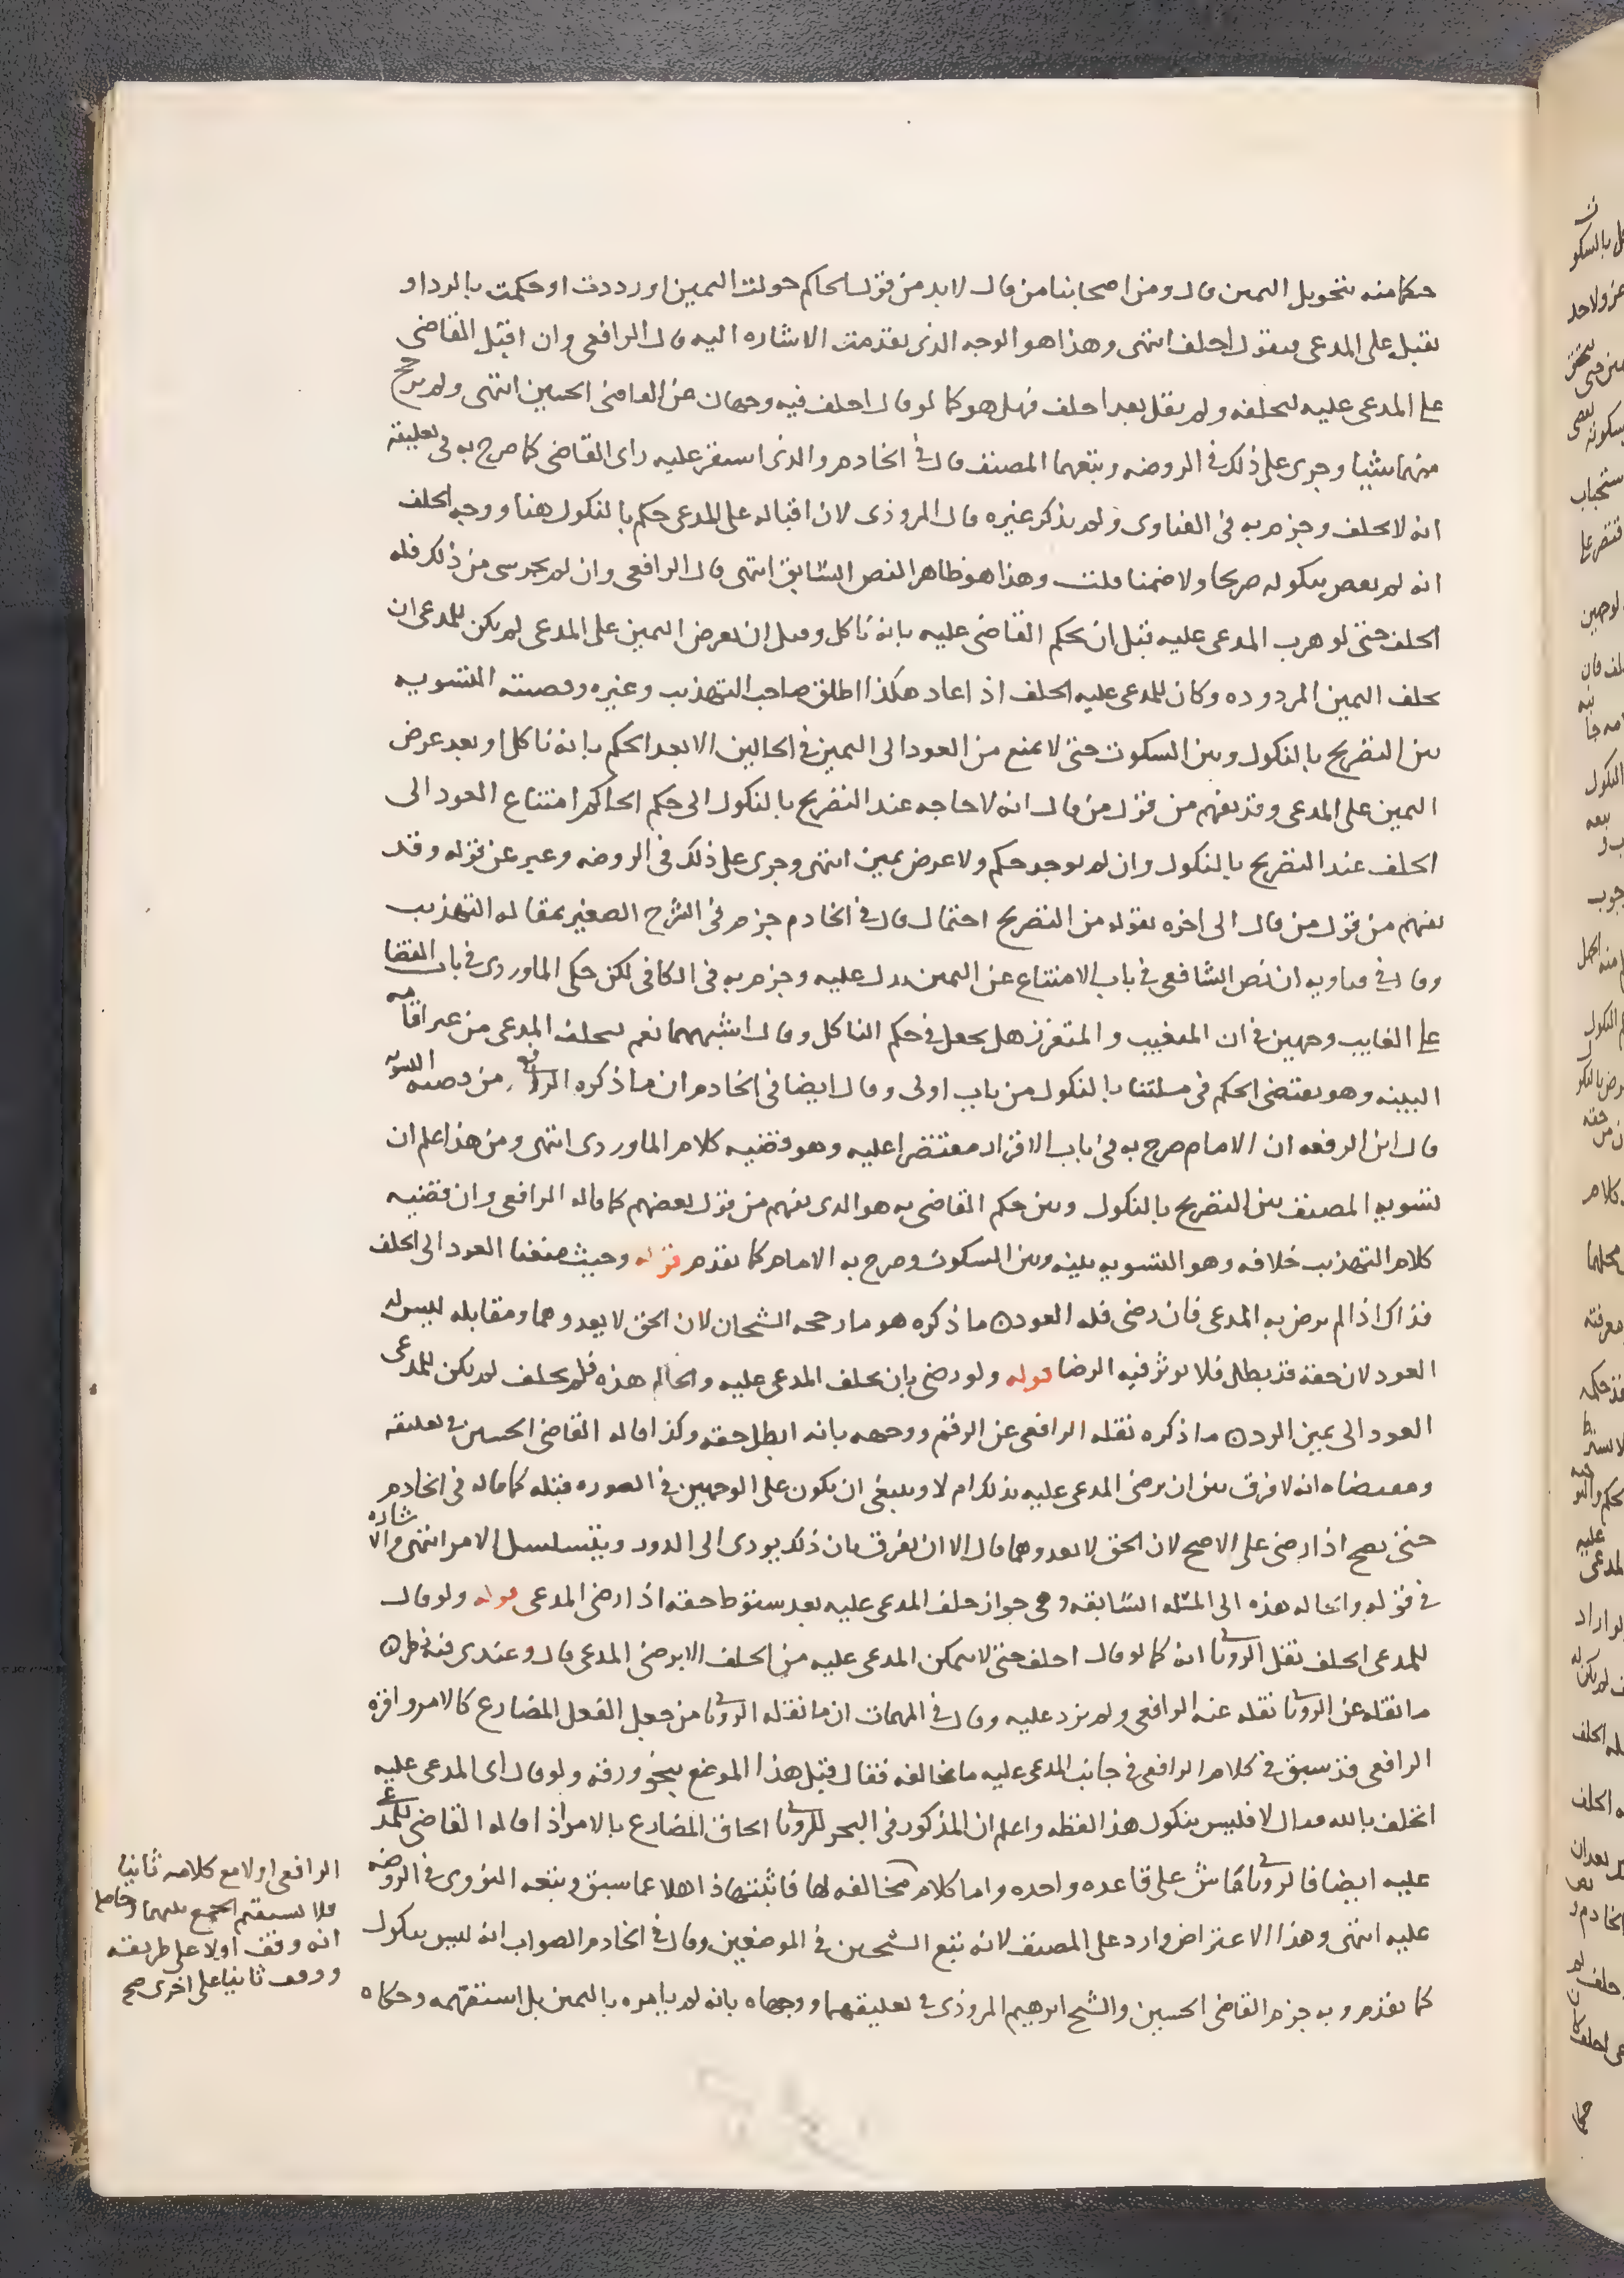 حكما منه بتحويل اليمين قال ومن اصحابنا من قال لا بد من قول الحاكم حولت اليمين او رددت او حكمت بالرد او
يقبل على المدعى فيقول احلف انتهى وهذا هو الوجه الذى تقدمت الاشاره اليه قال الرافعى وان اقبل القاضى
على المدعى عليه ليحلفه ولم يقل بعد احلف فهل هو كما لو قال احلف فيه وجهان عن القاضى الحسين انتهى ولم يرجح
منهما شيئا وجرى على ذلك فى الروضه وتبعهما المصنف قال فى الخادم والذى استقر عليه راى القاضى كما صرح به فى تعليقه
انه لا يحلف وجزم به فى الفتاوى ولم يذكر غيره قال المروذى لان اقباله على المدعى حكم بالنكول هنا ووجه الحلف
انه لم يعص بنكوله صريحا ولا ضمنا قلت وهذا هو ظاهر النص السابق انتهى قال الرافعى وان لم يجر شى من ذلك فله
الحلف حتى لو هرب المدعى عليه قبل ان يحكم القاضى عليه بانه ناكل وقبل ان يعرض اليمين على المدعى لم يكن للمدعى ان
يحلف اليمين المردوده وكان للمدعى عليه الحلف اذ اعاد هكذا اطلق صاحب التهذيب وغيره وقضيته التسويه
بين التصريح بالنكول وبين السكوت حتى لا يمنع من العود الى اليمين فى الحالين الا بعد الحكم بانه ناكل او بعد عرض
اليمين على المدعى وقد يفهم من قول من قال انه لا حاجه عند التصريح بالنكول الى حكم الحاكم امتناع العود الى
الحلف عند التصريح بالنكول وان لم يوجد حكم ولا عرض يمين انتهى وجرى على ذلك فى الروضه وعبر عن قوله وقد
يفهم من قول من قال الى اخره بقوله من التصريح احتمال قال فى الخادم جزم فى الشرح الصغير بمقاله التهذيب
وقال فى فتاويه ان نص الشافعى فى باب الامتناع عن اليمين يدل عليه وجزم به فى الكافى لكن حكى الماوردى فى باب القضا
على الغايب وجهين فى ان المتغيب والمتعزز هل يجعل فى حكم الناكل وقال اشبههما نعم ليحلف المدعى من غير اقامه
البينه وهو يقتضى الحكم فى مسلتنا بالنكول من باب اولى وقال ايضا فى الخادم ان ما ذكره الرافعى من قضيه التسويه
قال ابن الرفعه ان الامام صرح به فى باب الاقرار مقتصرا عليه وهو قضيه كلام الماوردى انتهى ومن هذا علم ان
تسويه المصنف بين التصريح بالنكول وبين حكم القاضى به هو الذى يفهم من قول بعضهم كما قاله الرافعى وان قضيه
كلام التهذيب خلافه وهو التسويه بينه وبين السكوت وصرح به الامام كما تقدم قوله وحيث منعنا العود الى الحلف
فذاك اذا لم يرض به المدعى فان رضى فله العود ما ذكره هو ما رجحه الشيخان لان الحق لا يعدوهما ومقابله ليس له
العود لان حقه قد بطل فلا يوثر فيه الرضا قوله ولو رضى بان يحلف المدعى عليه والحاله هذه فلم يحلف لم يكن للمدعى
العود الى يمين الرد ما ذكره نقله الرافعى عن الرقم ووجهه بانه ابطل حقه وكذا قاله القاضى الحسين فى تعليقه
ومقتضاه انه لا فرق بين ان يرضى المدعى عليه بذلك ام لا وينبغى ان يكون على الوجهين فى الصوره قبله كما قاله فى الخادم
حتى يصح اذا رضى على الاصح لان الحق لا يعدوهما قال الا ان يفرق بان ذلك يودى الى الدور ويتسلسل الامر انتهى والاشاره
فى قوله والحاله هذه الى المسله السابقه وهى جواز حلف المدعى عليه بعد سقوط حقه اذا رضى المدعى قوله ولو قال
للمدعى اتحلف نقل الرويانى انه كما لو قال احلف حتى لا يتمكن المدعى عليه من الحلف الا برضى المدعى قال وعندى فيه نظر
ما نقله عن الرويانى نقله عنه الرافعى ولم يزد عليه وقال فى المهمات ان ما نقله الرويانى من جعل الفعل المضارع كالامر واقره
الرافعى قد سبق فى كلام الرافعى فى جانب المدعى عليه ما يخالفه فقال قبل هذا الموضع بنحو ورقه ولو قال اى المدعى عليه
اتحلف بالله فقال لا فليس بنكول هذا لفظه واعلم ان المذكور فى البحر للرويانى الحاق المضارع بالامر اذا قاله القاضى للمدعى
عليه ايضا فالرويانى ماش على قاعده واحده واما كلام مخالفه لها فاثبتها ذاهلا عما سبق وتبعه النووى فى الروضه
عليه انتهى وهذا الاعتراض وارد على المصنف لانه تبع الشيخين فى الموضعين وقال فى الخادم الصواب انه ليس بنكول
كما تقدم وبه جزم القاضى الحسين والشيخ ابرهيم المروذى فى تعليقهما ووجهاه بانه لم يامره باليمين بل استفهمه وحكاه
الرافعى اولا مع كلامه ثانيا
فلا يستقيم الجمع بينهما وحاصله
انه وقف اولا على طريقه
ووقف ثانيا على اخرى صح